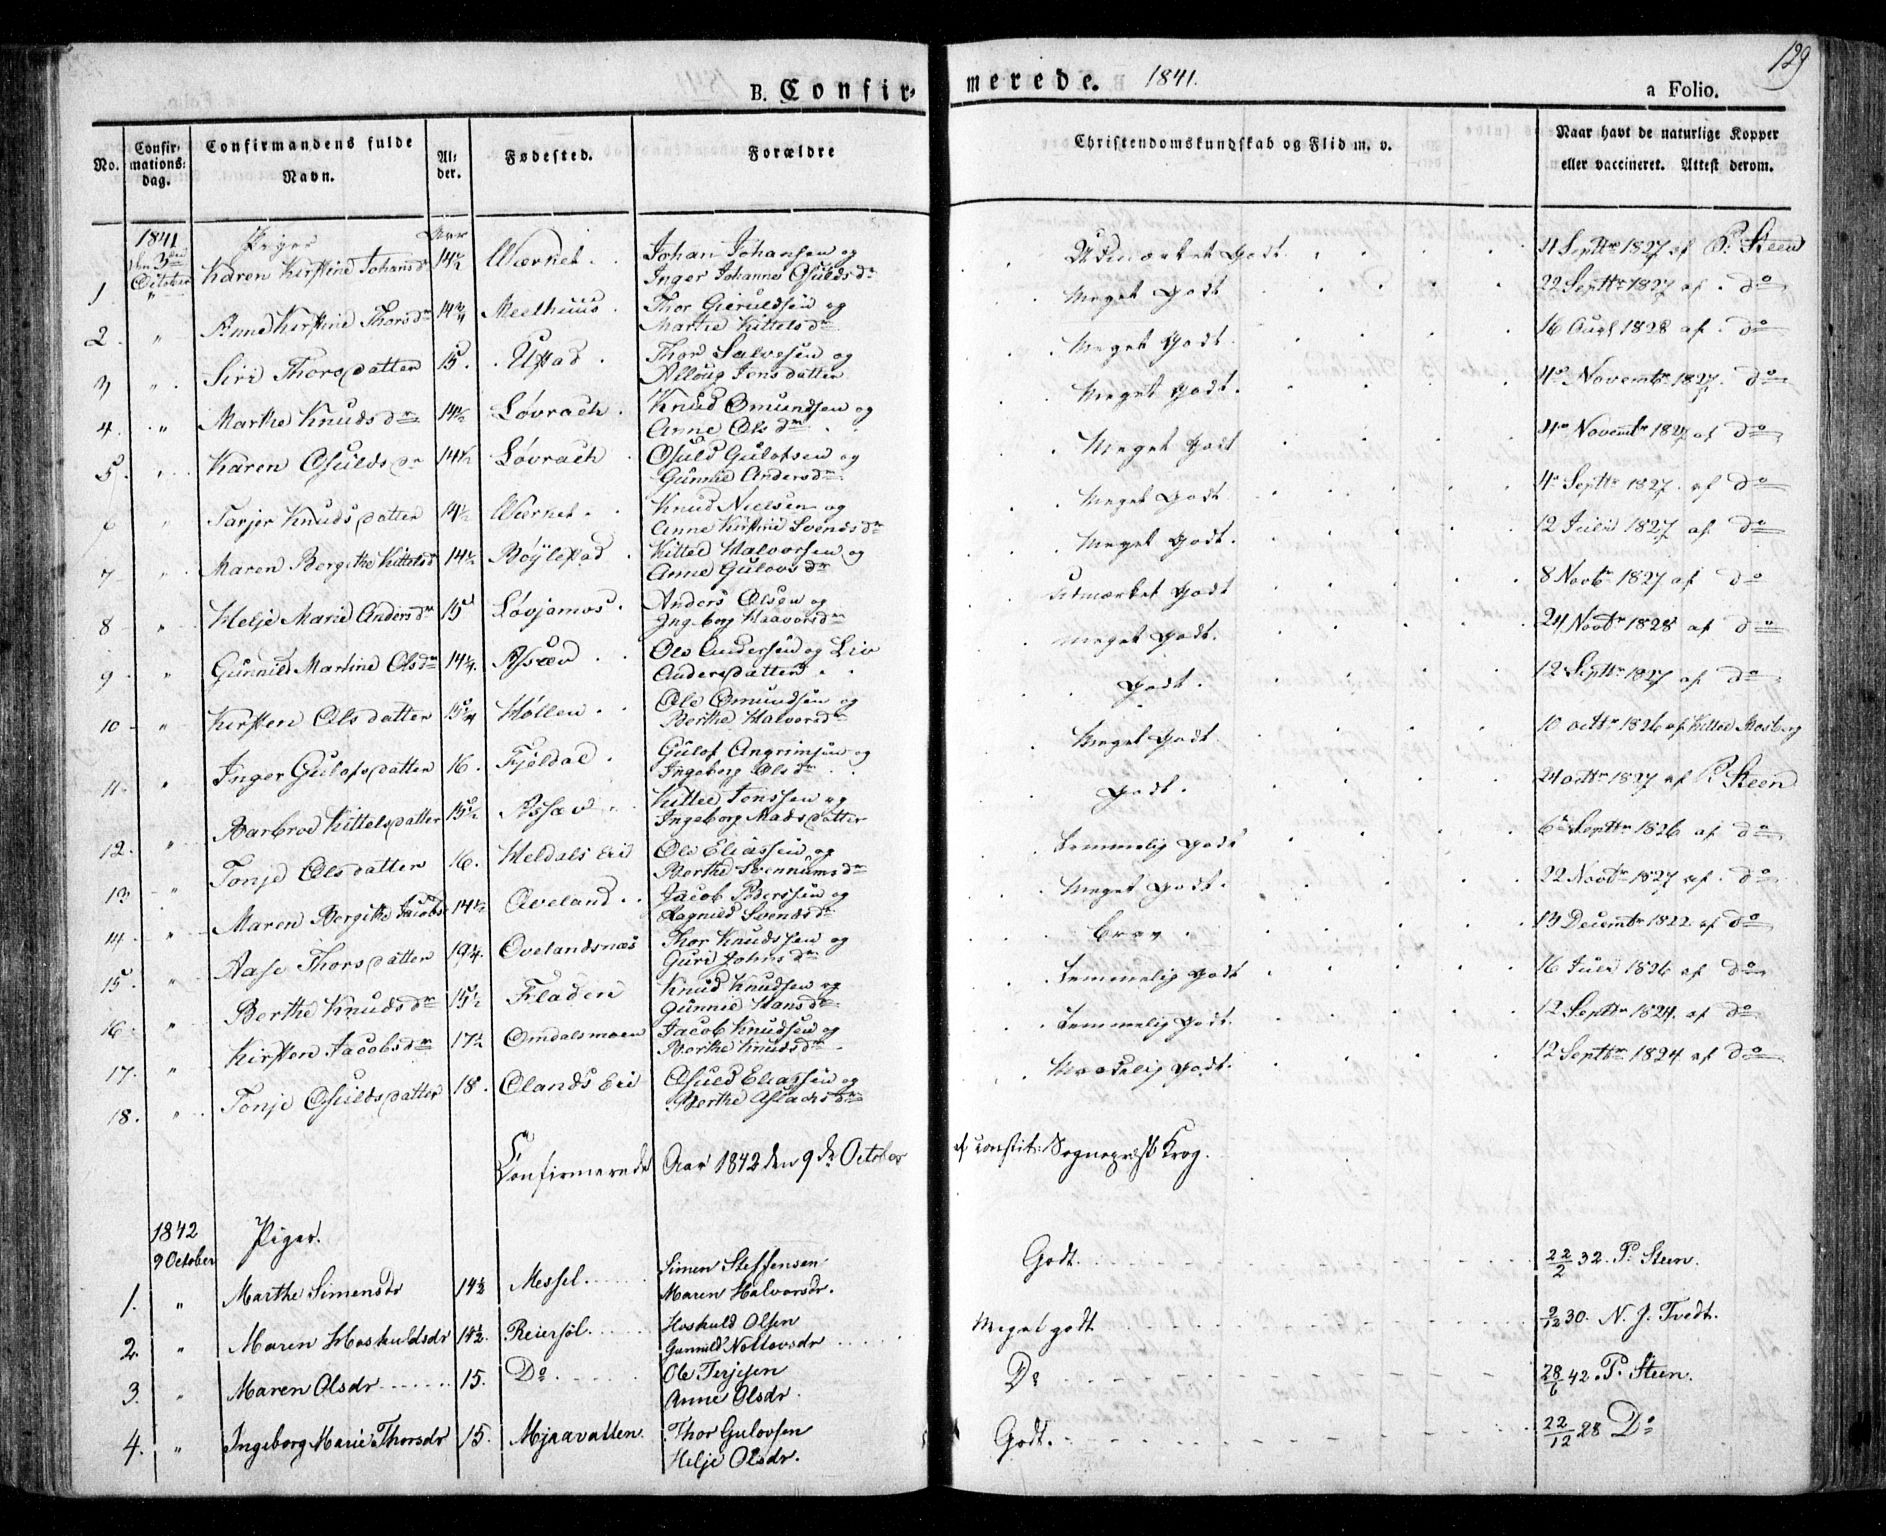 129
B. Confir-merede. 1841.
a Folio.
No.
Confir-
mations-
dag.
Confirmandens fulde
Navn.
Al-
der.
Fødested.
Forældre
Christendomskundskab og Flid m. v.
Naar havt de naturlige Kopper
eller vaccineret. Attest derom.
1841 Piger Aar
den 3die October
1 " Karen Kirstine Johansdr 14½ Wærnet. Johan Johansen og Inger Johanne Osulds dr Udmærket Godt 4 Septbr 1827 af P. Steen
2. " Anne Kirstine Thorsdr 14¾ Meelhuus. Thor Gieruldsen og Marthe Kittelsdr Meget Godt 22 Septbr 1827 af do
3 " Siri Thorsdatter 15. Ustad. Thor Salvesen og Alloug Jensdatter Meget Godt. 16 Augs 1828 af do
4. " Marthe Knudsdr 14½ Løvrach. Knud Omundsen og Anne Olsdr Meget Godt. 4de Novembr 1827. do
5. " Karen Osuldsdr 14½ Løvrach Osuld Gulofsen og Gunnild Andersdr Meget Godt 4de Novembr 1827 af do
6 " Tarjer Knudsdatter 14½ Wærnet. Knud Nielsen og Anne Kirstine Svendsdr Meget Godt 4de Septbr 1827. af do
7 " Maren Bergithe Kittelsd 14½ Bøylestad Kittel Halvorsen og Anne Gulovsdr Meget Godt. 12 Julii 1827 af do
8 " Helje Marie Andersdr 15 Løvjomos. Anders Olsen og Ingeborg Haavorsdr Udmærket Godt 8 Novbr 1827 af do
9 " Gunnild Martine Olsdr 14¼. Assæv. Ole Andersen og Liv Andersdatter. Meget Godt. 24 Novbr 1828 af do
10 " Kirsten Olsdatter 15¼ Høllen. Ole Omundsen og Berthe Halvorsdr Godt. 12 Septbr 1827 af do
11. " Inger Gulofsdatter 16. Fjeldal. Gulof Angrimsen og Ingeborg Olsdr Meget Godt 10 octbr 1826 af Kittel Mosberg
12. " Barbroe Kittelsdatter 15½ Assæv. Kittel Jenssen og Ingeborg Madsdatter Godt. 24 octbr 1827 af P. Steen
13 " Tonje Olsdatter 16. Heldals Eie Ole Eliassen og Berthe Svennumsdr Temmelig Godt 6te Septbr 1826 af do
14. " Maren Bergithe Jacobsd 14½ Aveland. Jacob Pederssen og Ragnild Svendsdr Meget Godt. 22 Novbr 1827 af do
15. " Aase Thorsdatter 19¼. Ovelandsnæs Thor Knudssen og Guri Johnsdr brav. 13 Decembr 1822 af do
16. " Berthe Knudsdr 15½ Fladen Knud Knudsen og Gunnie Hansdr Temmelig Godt 16 Julii 1826 af do
17. " Kirsten Jacobsdr 17½ Omdalsmoen Jacob Knudsen og Berthe Knudsdr Temmelig Godt. 12 Septbr 1824. af do
18. " Tonje Osuldsdatter 18. Olands Eie Osuld Eliassen og Berthe Aslaksdr Maadelig Godt. 12 Septbr 1824 af do
Confirmerede Aar 1842 den 9de October af constit: Sognepræst Krog.
1842 Piger.
9 October
1. " Marthe Simensdr 14½ Messel. Simen Steffensen Maren Halvorsdr. Godt. 22/2 32. P. Steen.
2. " Maren Hoskuldsdr 14½. Reiersøl. Hoskuld Olsen Gunnild Nottovsdr Meget godt 9/12 30. N. J. Tvedt.
3. " Maren Olsdr 15. Do. Ole Terjesen Anne Olsdr. Do 28/6 42. P. Steen.
4. " Ingeborg Marie Thorsdr 15. Mjaavatten. Thor Gulovsen Helje Olsdr. Godt. 22/12 28 Do